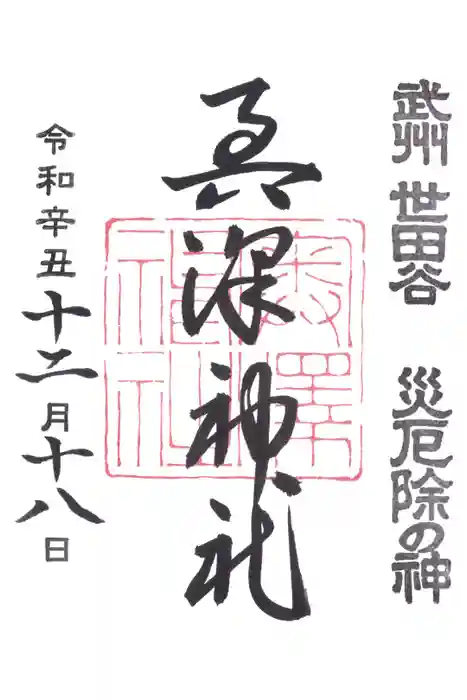 武州 世田谷 災厄除の神
奥澤神社
令和辛丑十二月十八日